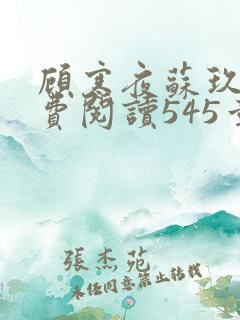 顧寒夜蘇玖
費閱讀545
張杰苑
未經同意禁止轉載